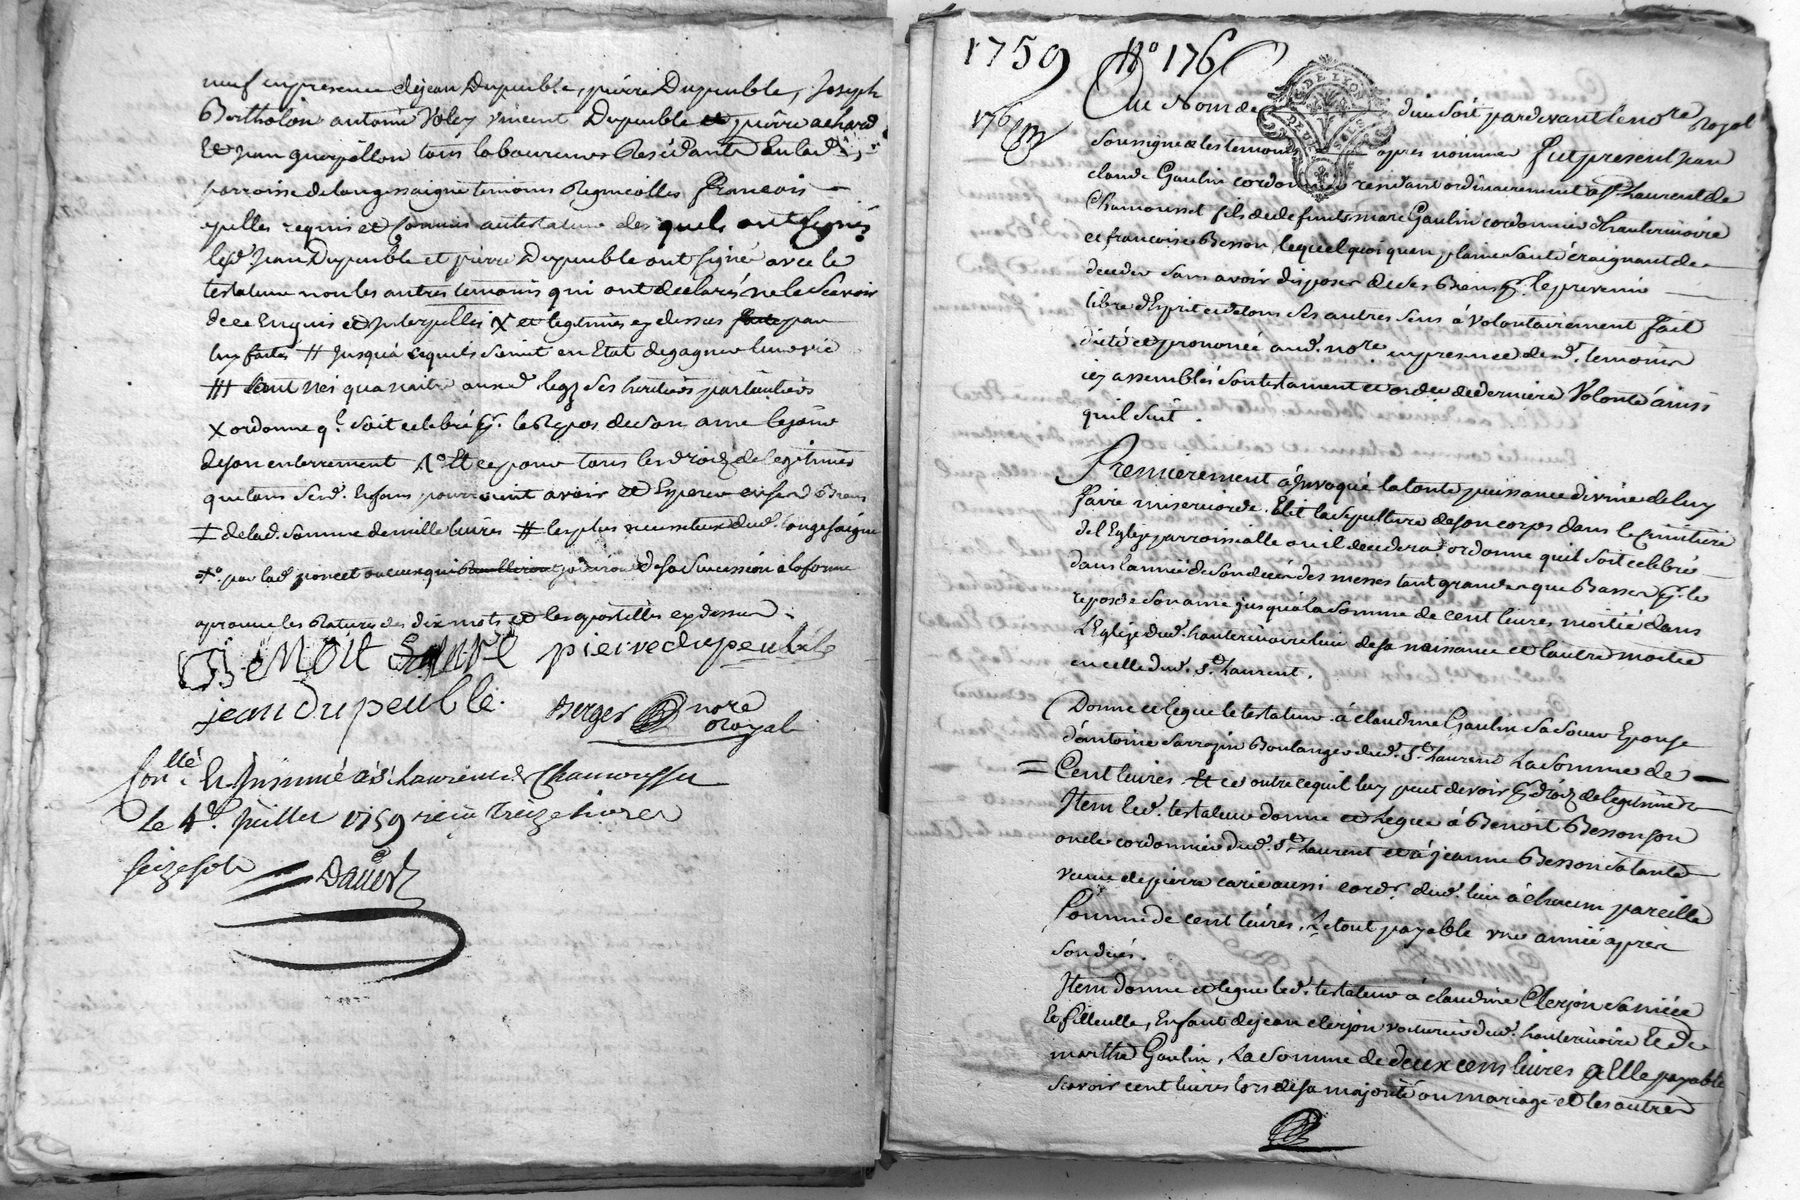 neuf en presence de jean Dupeuble, pierre Dupeuble, Joseph
Bertholon antoine Voley vincent Dupeuble et pierre achard
Et jean quarpillon tous laboureurs Residants En lad.
parroisse de longessaigne temoins Regnicolles francois
apellés requis et par le testateur des quels ont signés
lesd. Jean Dupeuble et pierre Dupeuble ont signé avec le
testateur non les autres temoins qui ont declarés ne le Scavoir
de ce Enquis et Interpellés X et legitimes cy dessus par
luy faites # Jusqu'a cequils soient en Etat de gagner leur vie
### a naitre auxd. legs ses heritiers particuliers
X ordonne q.l soit celebré p.r le Repos de son ame le jour
de son enterrement Et ce pour tous les droits de legitimes
que tous sesd. Enfans pourroient avoir et Esperer en ses d. Biens
‡ de lad. somme de mille livres # les plus necessiteux dud. longesaigne
par lad. poncet ou ceux qui de sa Succession a la forme
aprouve les Ratures des dix mots et les apostilles cy dessus.
BENOIT pierre dupeuble
jean dupeuble. Berger nore
Royal
Con.llé & Insinué a St Laurent de Chamousset
Le 4.e Juillet 1759 reçu treize livres
seize sols
David
1759 No 176
176
Au Nom de dieu Soit pardevant le nore Royal
Soussigné et les temoins apres nommés fut present Jean
claude Gaulin cordonnier residant ordinairement a St. Laurent de
Chamousset fils de defunts marc Gaulin cordonnier d'hauterivoire
et francoise Besson, lequel quoi quen pleine Santé craignant de
deceder Sans avoir disposer de ses Biens p.r le prevenir
libre d'Esprit et de tous Ses autres Sens à Volontairement fait
dicté et prononcé aud. nore. en presence desd. temoins
icy assemblés Son testament et ordre de derniere Volonté ainsi
quil suit.
Premierement à Invoqué la toute puissance divine de luy
faire misericorde. Elit la Sepulture de son corps dans le Cimitiere
de l'Eglize parroissialle ou il decedera ordonne quil soit celebré
dans l'année de Son decés des messes tant grandes que Basses p.r le
repos de Son ame jusqu'a la Somme de cent livres moitié dans
L'Eglize dud. hauterivoire lieu de sa naissance et l'autre moitié
en celle dud. St. Laurent.
Donne et legue le testateur à claudine Gaulin Sa Soeur Epouse
d'antoine Sarrazin Boulanger dud. St. Laurent La Somme de
Cent livres Et ce outre ce quil luy peut devoir p.r droits de legitimes
Item led. testateur donne et legue à Benoit Besson son
oncle cordonnier dud. St. Laurent et à jeanne Besson Sa tante
veuve de pierre carie aussi cord.r dud. lieu à chacun pareille
Somme de cent livres, Le tout payable une année après
Son decés.
Item donne et legue led. testateur à claudine Clerjon Sa niéce
et filleulle, Enfant de jean clerjon voiturier dud. hauterivoire et de
marthe Gaulin, La Somme de deux cens livres a Elle payable
Scavoir cent livres lors de sa majorité ou mariage et les autres